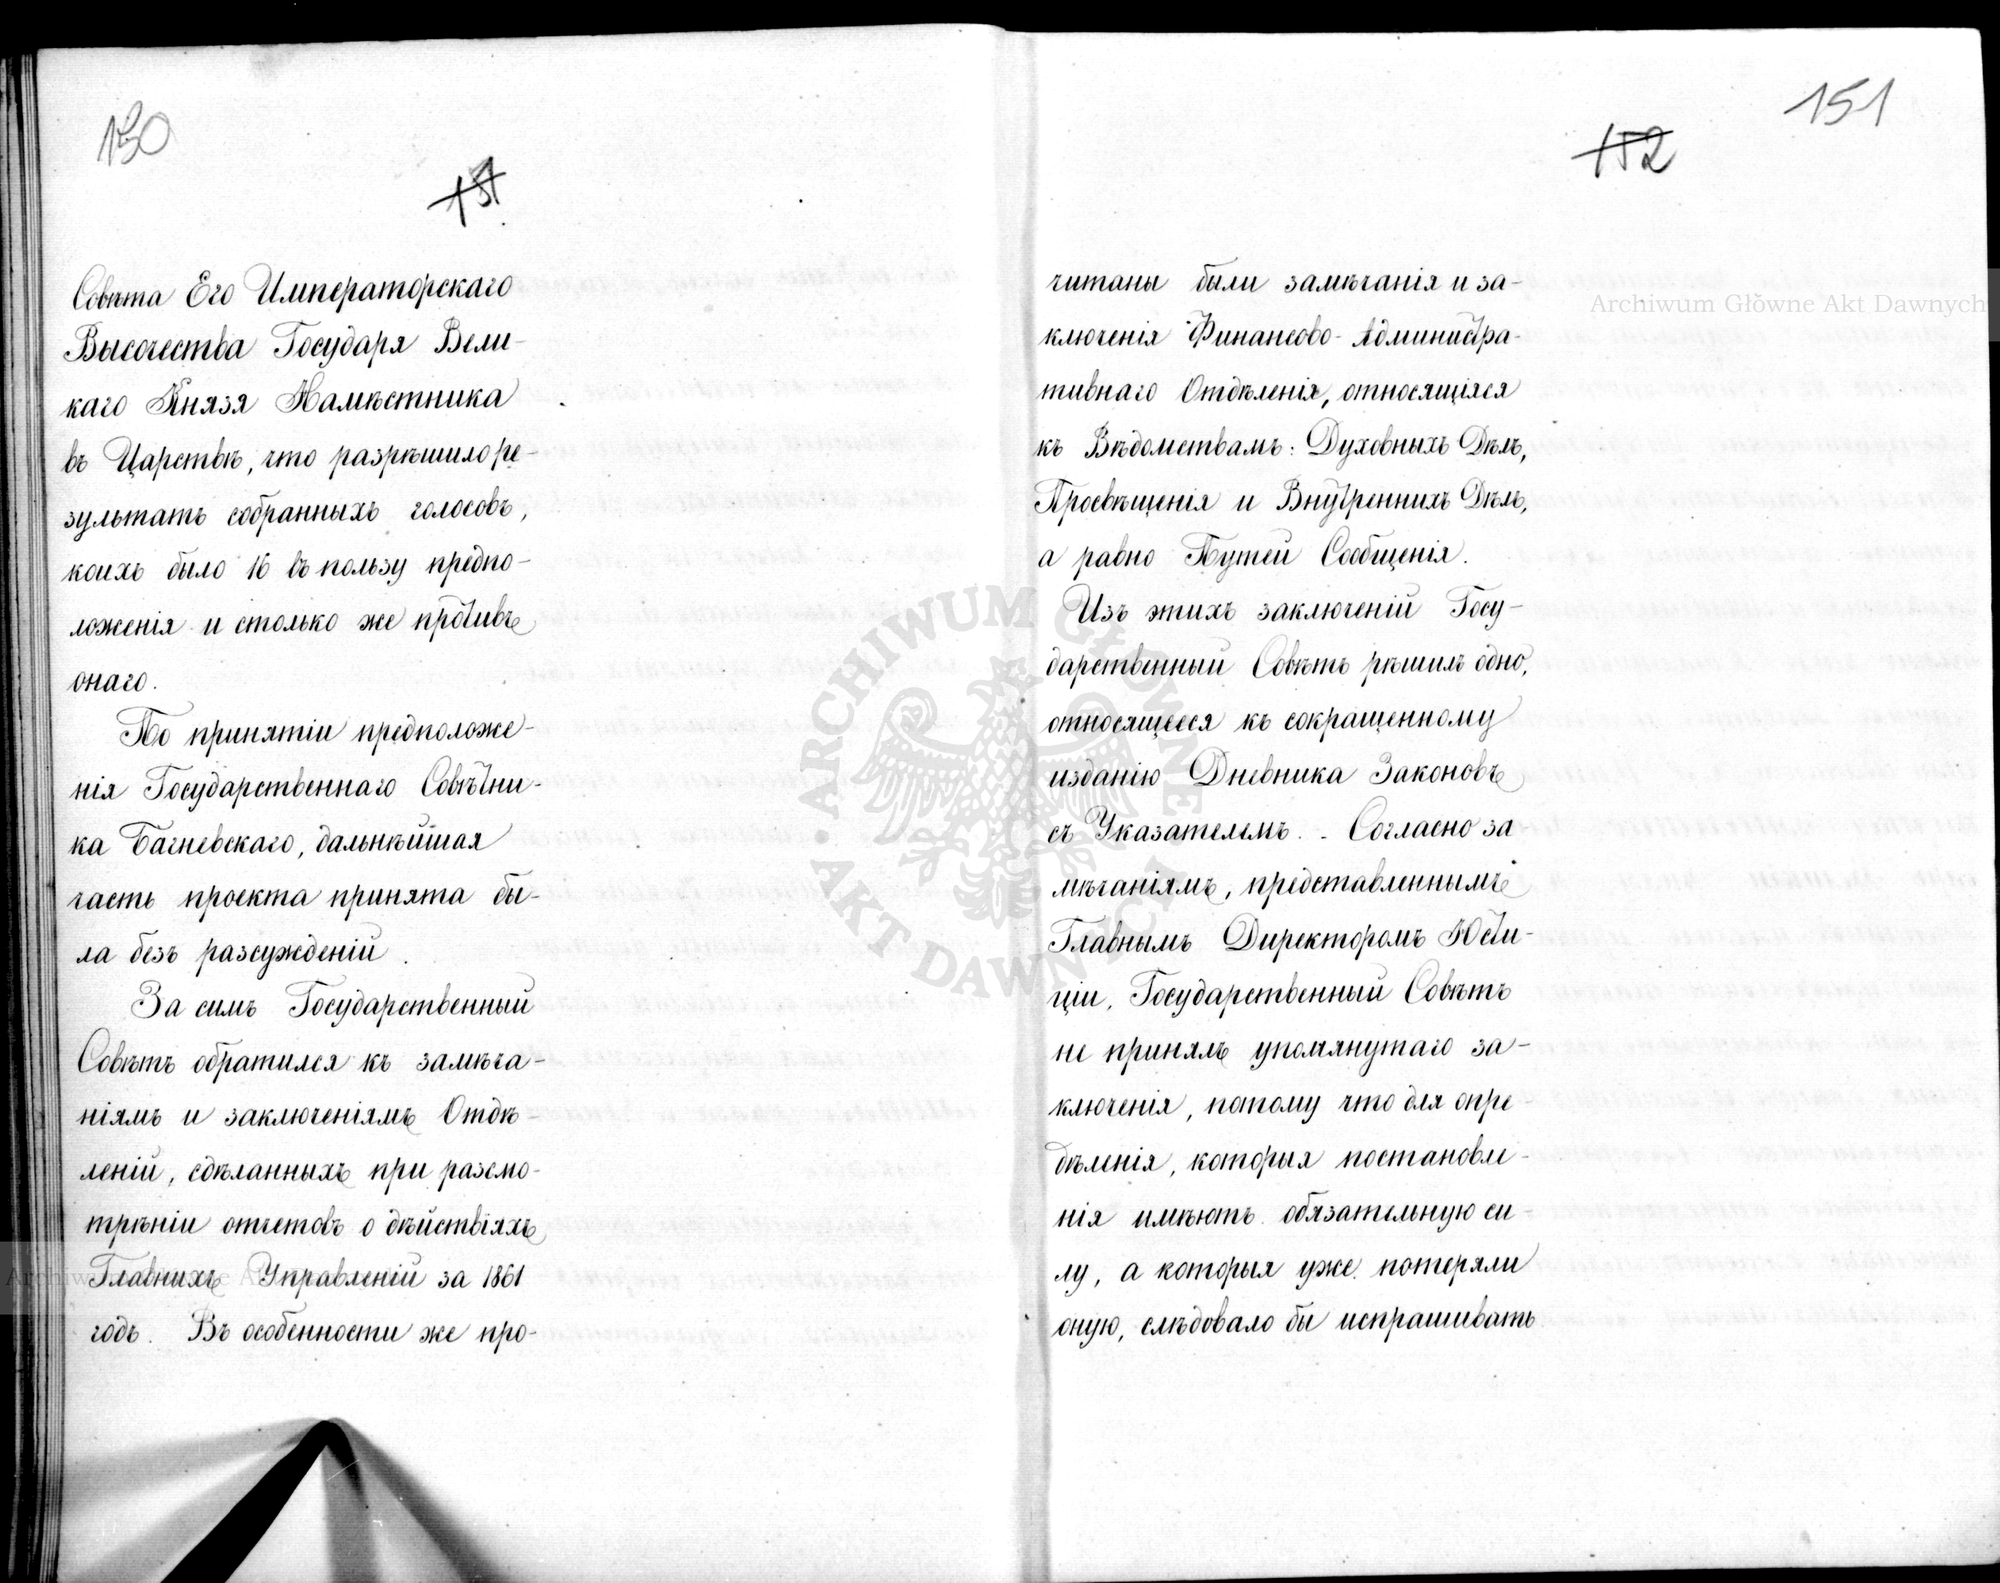 150
151
Совѣта Его Императорскаго
Высочества Государя Вели-
каго Князя Намѣстника
въ Царствѣ, что разрѣшило ре-
зультатъ собранныхъ голосовъ,
коихъ было 16 въ пользу предпо-
ложенія и столько же противъ
онаго.
По принятіи предположе-
нія Государственнаго Совѣтни-
ка Багневскаго, дальнѣйшая
часть проекта принята бы-
ла безъ разсужденій.
За симъ Государственный
Совѣтъ обратился къ замѣча-
ніямъ и заключеніямъ Отдѣ-
леній, сдѣланныхъ при разсмо-
трѣніи отчетовъ о дѣйствіяхъ
Главныхъ Управленій за 1861
годъ. Въ особенности же про-
151
152
читаны были замѣчанія и за-
ключенія Финансово-Администра-
тивнаго Отдѣленія, относящіяся
къ Вѣдомствамъ: Духовныхъ Дѣлъ,
Просвѣщенія и Внутреннихъ Дѣлъ,
а равно Путей Сообщенія.
Изъ этихъ заключеній Госу-
дарственный Совѣтъ рѣшилъ одно,
относящееся къ сокращенному
изданію Дневника Законовъ
съ Указателемъ. - Согласно за
мѣчаніямъ, представленнымъ
Главнымъ Директоромъ Юсти-
ціи, Государственный Совѣтъ
не принялъ упомянутаго за-
ключенія, потому что для опре-
дѣленія, которыя постановле-
нія имѣютъ обязательную си-
лу, а которыя уже потеряли
оную, слѣдовало бы испрашивать
Archiwum Główne Akt Dawnych
ARCHIWUM GŁÓWNE AKT DAWNYCH